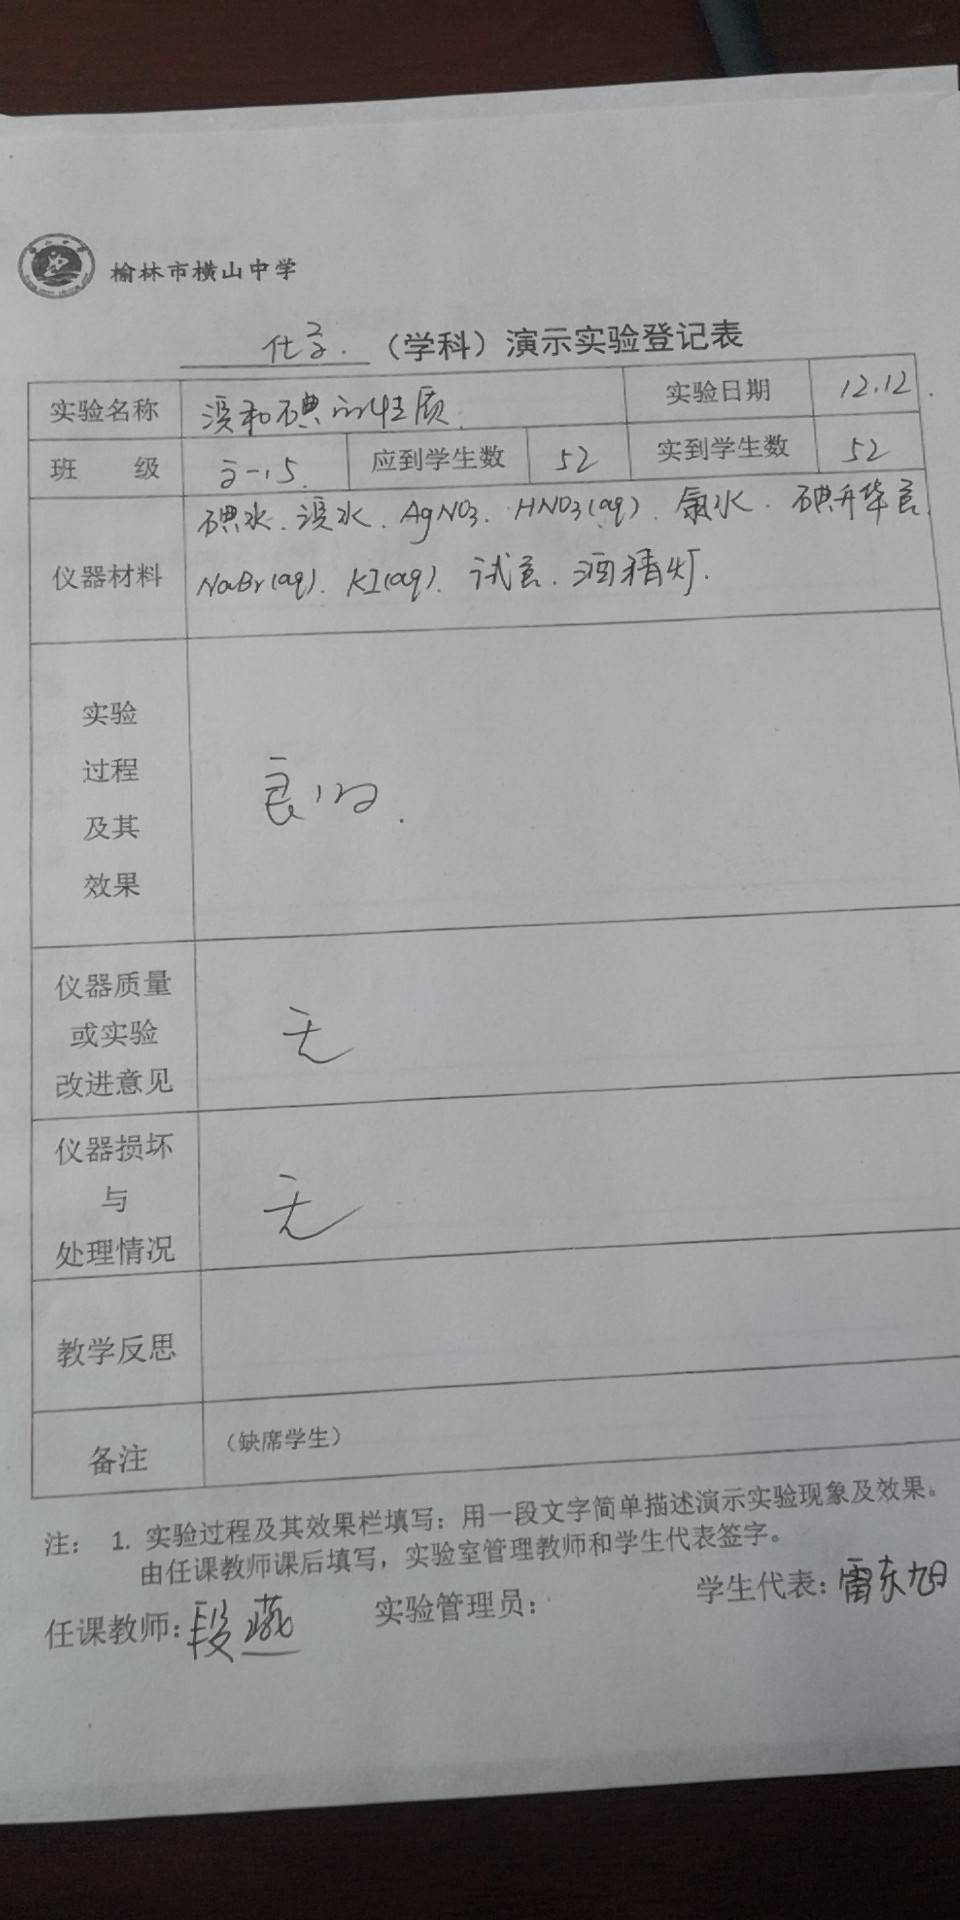 榆林市横山中学
化学.（学科）演示实验登记表
实验名称 溴和碘的性质. 实验日期 12.12.
班 级 高一.5. 应到学生数 52 实到学生数 52
仪器材料 碘水.溴水.AgNO3.HNO3(aq).氯水.碘升华管.
NaBr(aq).KI(aq).试管.酒精灯.
实验
过程
及其
效果
良好.
仪器质量
或实验
改进意见
无
仪器损坏
与
处理情况
无
教学反思
备注 （缺席学生）
注： 1. 实验过程及其效果栏填写：用一段文字简单描述演示实验现象及效果。
由任课教师课后填写，实验室管理教师和学生代表签字。
任课教师：段燕 实验管理员： 学生代表：雷东旭